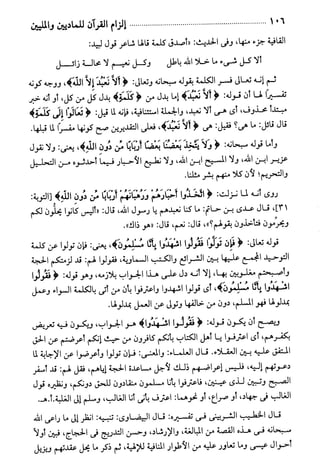 ١٠٦ إلزام القرآن للماديين والمليين
القافية جزء منها، وفى الحديث: «أصدق كلمة قالها شاعر قول لبيد:
ألا كل شىء ما خلا الله باطل وكل نعيم لا محالة زائل
ثم إنه تعالى فسر الكلمة بقوله سبحانه وتعالى: ﴿أَلاَّ نَعْبُدَ إِلاَّ اللَّهَ﴾، ووجه كونه
تفسيرًا لها أن قوله: ﴿أَلاَّ نَعْبُدَ﴾ إما بدل من ﴿كَلِمَةٍ﴾ بدل كل من كل، أو أنه خبر
مبتدأ محذوف، أى هى ألا نعبد، والجملة استئنافية، فإنه لما قيل: ﴿تَعَالَوْا إِلَى كَلِمَةٍ﴾
قال قائل: ما هى؟ فقيل: هى ﴿أَلاَّ نَعْبُدَ﴾، فعلى التقديرين صح كونها مفسرًا لما قبلها.
وأما قوله سبحانه: ﴿وَلاَ يَتَّخِذَ بَعْضُنَا بَعْضًا أَرْبَابًا مِّن دُونِ اللَّهِ﴾، يعنى: ولا نقول
عزير ابن الله، ولا المسيح ابن الله، ولا نطيع الأحبار فيما أحدثوه من التحليل
والتحريم؛ لأن كلا منهم بشر مثلنا.
روى أنه لما نزلت: ﴿اتَّخَذُوا أَحْبَارَهُمْ وَرُهْبَانَهُمْ أَرْبَابًا مِّن دُونِ اللَّهِ﴾ [التوبة:
٣١]، قال عدى بن حاتم: ما كنا نعبدهم يا رسول الله، قال: «أليس كانوا يحلون لكم
ويحرمون فتأخذون بقولهم؟»، قال: نعم، قال: «هو ذاك».
قوله تعالى: ﴿فَإِن تَوَلَّوْا فَقُولُوا اشْهَدُوا بِأَنَّا مُسْلِمُونَ﴾، يعنى: فإن تولوا عن كلمة
التوحيد المجمع عليها بين الشرائع والكتب السماوية، فقولوا لهم: قد لزمتكم الحجة
وأصبحتم مغلوبين بها، إلا أنه دل على هذا الجواب بلازمه، وهو قوله: ﴿فَقُولُوا
اشْهَدُوا بِأَنَّا مُسْلِمُونَ﴾، أى قولوا اشهدوا واعترفوا بأن من أتى بالكلمة السواء وعمل
بمدلولها فهو المسلم، دون من خالفها وتولى عن العمل بمدلولها.
ويصح أن يكون قوله: ﴿فَقُولُوا اشْهَدُوا﴾ هو الجواب، ويكون فيه تعريض
بكفرهم، أى اعترفوا يا أهل الكتاب بأنكم كافرون من حيث إنكم أعرضتم عن الحق
المتفق عليه بين العقلاء. قال العلماء: والمعنى: فإن تولوا وأعرضوا عن الإجابة لما
دعوتهم إليه، فليس إعراضهم ذلك لأجل مساعدة الحجة إياهم، فقل لهم: قد أسفر
الصبح وتبين لذى عينين، فاعترفوا بأنا مسلمون منقادون للحق دونكم، ونظيره قول
الغالب فى جهاد، أو صراع، أو نحوهما: اعترف بأنى أنا الغالب، وسلم إلى الغلبة.أ.هـ.
قال الخطيب الشربينى فى تفسيره: قال البيضاوى: تنبيه: انظر إلى ما راعى الله
سبحانه فى هذه القصة من المبالغة، والإرشاد، وحسن التدريج فى الحجاج، فبين أولاً
أحوال عيسى وما تعاور عليه من الأطوار المنافية للإلهية، ثم ذكر ما يحل عقدتهم ويزيل